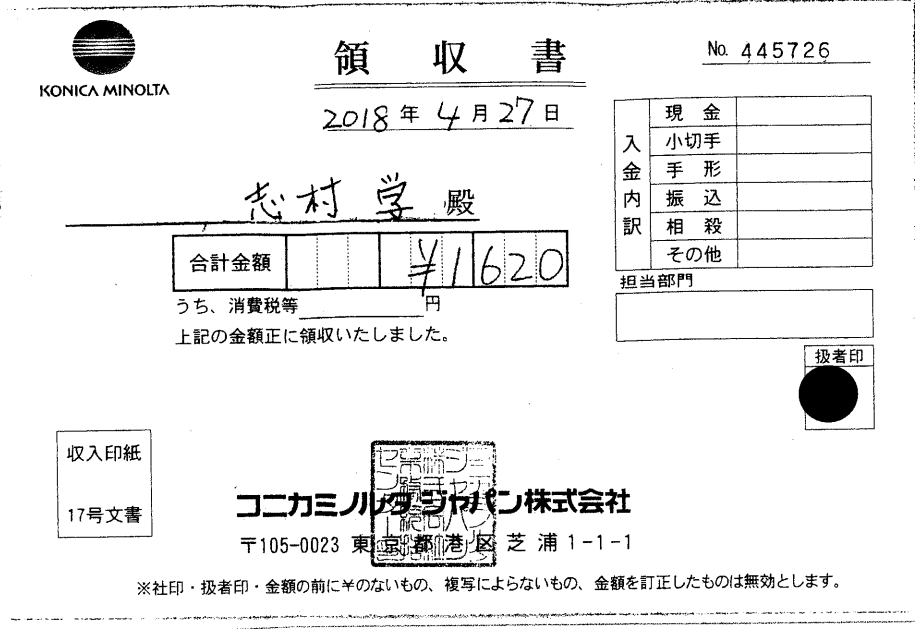 KONICA MINOLTA
領収書
No. 445726
2018年4月27日
志村 学 殿
合計金額 ¥1620
うち、消費税等 円
上記の金額正に領収いたしました。
入金内訳
現金
小切手
手形
振込
相殺
その他
担当部門
扱者印
収入印紙
17号文書
コニカミノルタ ジャパン株式会社
〒105-0023 東京都港区芝浦1-1-1
※社印・扱者印・金額の前に¥のないもの、複写によらないもの、金額を訂正したものは無効とします。